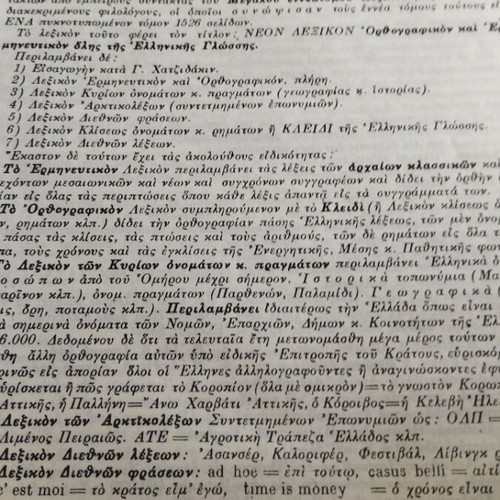 διακεκριμένους φιλολόγους, οἱ ὁποῖοι συνόψισαν τοὺς ἐννέα τόμους τούτους εἰ
ΕΝΑ πυκνοτυπωμένον τόμον 1526 σελίδων.
Τὸ λεξικὸν τοῦτο φέρει τὸν τίτλον: ΝΕΟΝ ΛΕΞΙΚΟΝ Ὀρθογραφικὸν καὶ Ἑρ
μηνευτικὸν ὅλης τῆς Ἑλληνικῆς Γλώσσης.
Περιλαμβάνει δέ:
1) Εἰσαγωγὴν κατὰ Γ. Χατζιδάκιν.
2) Λεξικὸν Ἑρμηνευτικὸν καὶ Ὀρθογραφικόν, πλήρη.
3) Λεξικὸν Κυρίων ὀνομάτων κ. πραγμάτων (γεωγραφίας κ. ἱστορίας).
4) Λεξικὸν Ἀρκτικολέξων (συντετμημένων ἐπωνυμιῶν).
5) Λεξικὸν Διεθνῶν φράσεων.
6) Λεξικὸν Κλίσεως ὀνομάτων κ. ρημάτων ἢ ΚΛΕΙΔΙ τῆς Ἑλληνικῆς Γλώσσης.
7) Λεξικὸν Διεθνῶν λέξεων.
Ἕκαστον δὲ τούτων ἔχει τὰς ἀκολούθους εἰδικότητας:
Τὸ Ἑρμηνευτικὸν Λεξικὸν περιλαμβάνει τὰς λέξεις τῶν ἀρχαίων κλασσικῶν καὶ
εχόντων μεσαιωνικῶν καὶ νέων καὶ συγχρόνων συγγραφέων καὶ δίδει τὴν ὀρθὴν
είαν εἰς ὅλας τὰς περιπτώσεις ὅπου κάθε λέξις ἀπαντᾷ εἰς τὰ συγγράμματά των.
Τὸ Ὀρθογραφικὸν Λεξικὸν συμπληρούμενον μὲ τὸ Κλειδὶ (ἢ Λεξικὸν κλίσεως ὀ
ων, ρημάτων κλπ.) δίδει τὴν ὀρθογραφίαν πάσης Ἑλληνικῆς λέξεως, τῶν μὲν ὀνομ
πάσας τὰς κλίσεις, τὰς πτώσεις καὶ τοὺς ἀριθμούς, τῶν δὲ ρημάτων εἰς ὅλα τ
πα, τοὺς χρόνους καὶ τὰς ἐγκλίσεις τῆς Ἐνεργητικῆς, Μέσης κ. Παθητικῆς φων
Τὸ Λεξικὸν τῶν Κυρίων ὀνομάτων κ. πραγμάτων περιλαμβάνει Ἑλληνικὰ ὀ
οσώπων ἀπὸ τοῦ Ὁμήρου μέχρι σήμερον. Ἱστορικὰ τοπωνυμία (Μα
αρῖνον κλπ.), ὀνομ. πραγμάτων (Παρθενών, Παλαμίδι). Γεωγραφικὰ (
εις, ὄρη, ποταμοὺς κλπ.). Περιλαμβάνει Ἰδιαιτέρως τὴν Ἑλλάδα ὅπως εἶναι
ὰ σημερινὰ ὀνόματα τῶν Νομῶν, Ἐπαρχιῶν, Δήμων κ. Κοινοτήτων τῆς Ἑλ
6.000. Δεδομένου δὲ ὅτι τὰ τελευταῖα ἔτη μετωνομάσθη μέγα μέρος τούτων
θη ἄλλη ὀρθογραφία αὐτῶν ὑπὸ εἰδικῆς Ἐπιτροπῆς τοῦ Κράτους, εὑρισκό
ρινῶς εἰς ἀπορίαν ὅλοι οἱ Ἕλληνες ἀλληλογραφοῦντες ἢ ἀναγινώσκοντες ἐφ
ὑρίσκεται ἢ πῶς γράφεται τὸ Κοροπίον (ὅλα μὲ ὀμικρὸν)=τὸ γνωστὸν Κορωπ
Ἀττικῆς, ἡ Παλλήνη=Ἄνω Χαρβάτι Ἀττικῆς, ὁ Κόροιβος=ἡ Κελεβὴ Ἠλε
Λεξικὸν τῶν Ἀρκτικολέξων Συντετμημένων Ἐπωνυμιῶν ὡς: ΟΛΠ =
Λιμένος Πειραιῶς. ΑΤΕ = Ἀγροτικὴ Τράπεζα Ἑλλάδος κλπ.
Λεξικὸν Διεθνῶν λέξεων: Ἀσανσέρ, Καλοριφέρ, Φεστιβάλ, Λίβινγκ ρ
Λεξικὸν Διεθνῶν φράσεων: ad hoc = ἐπὶ τούτῳ, casus belli = αἰτί
c' est moi = τὸ κράτος εἶμ' ἐγώ, time is money = ὁ χρόνος εἶναι